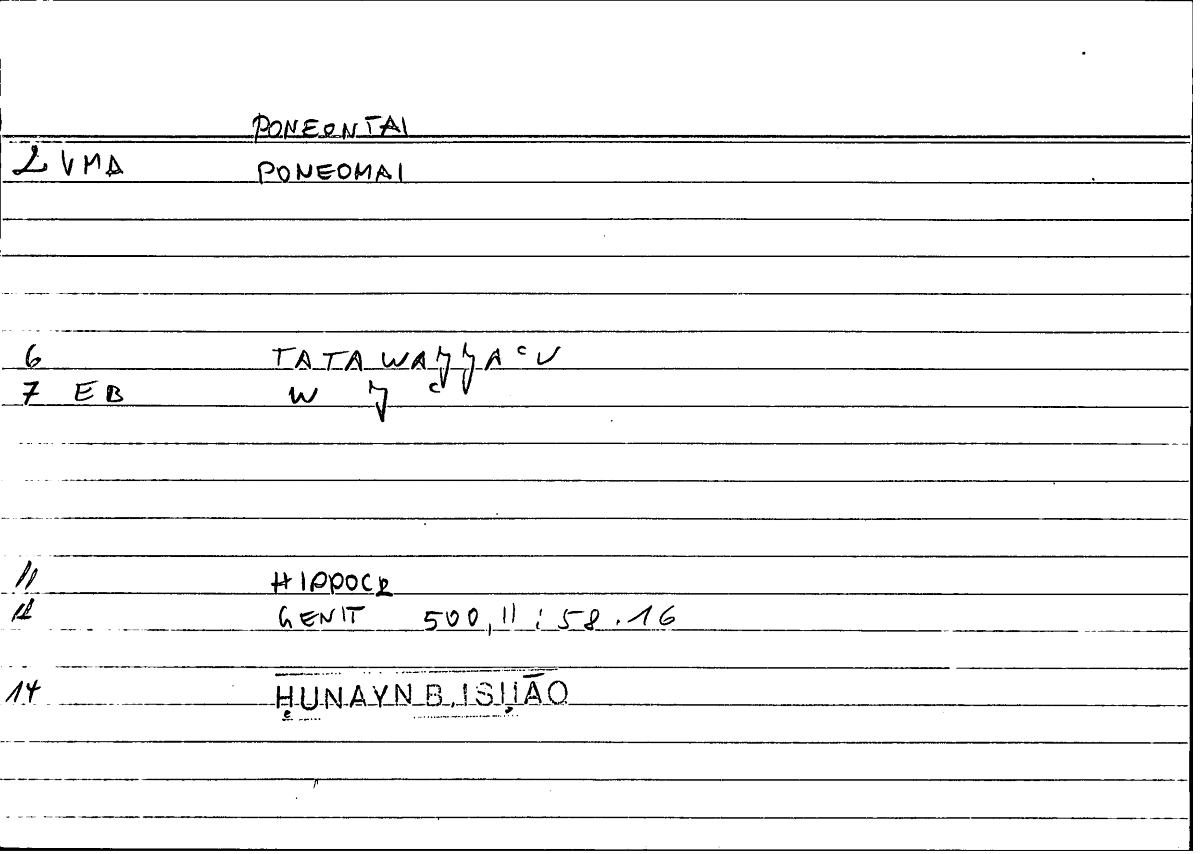 PONEONTAI
2 VMA PONEOMAI
6 TATAWAǦǦAʿU
7 EB W Ǧ ʿ
11 HIPPOCR
12 GENIT 500,11:58.16
14 ḤUNAYN B. ISḤĀQ